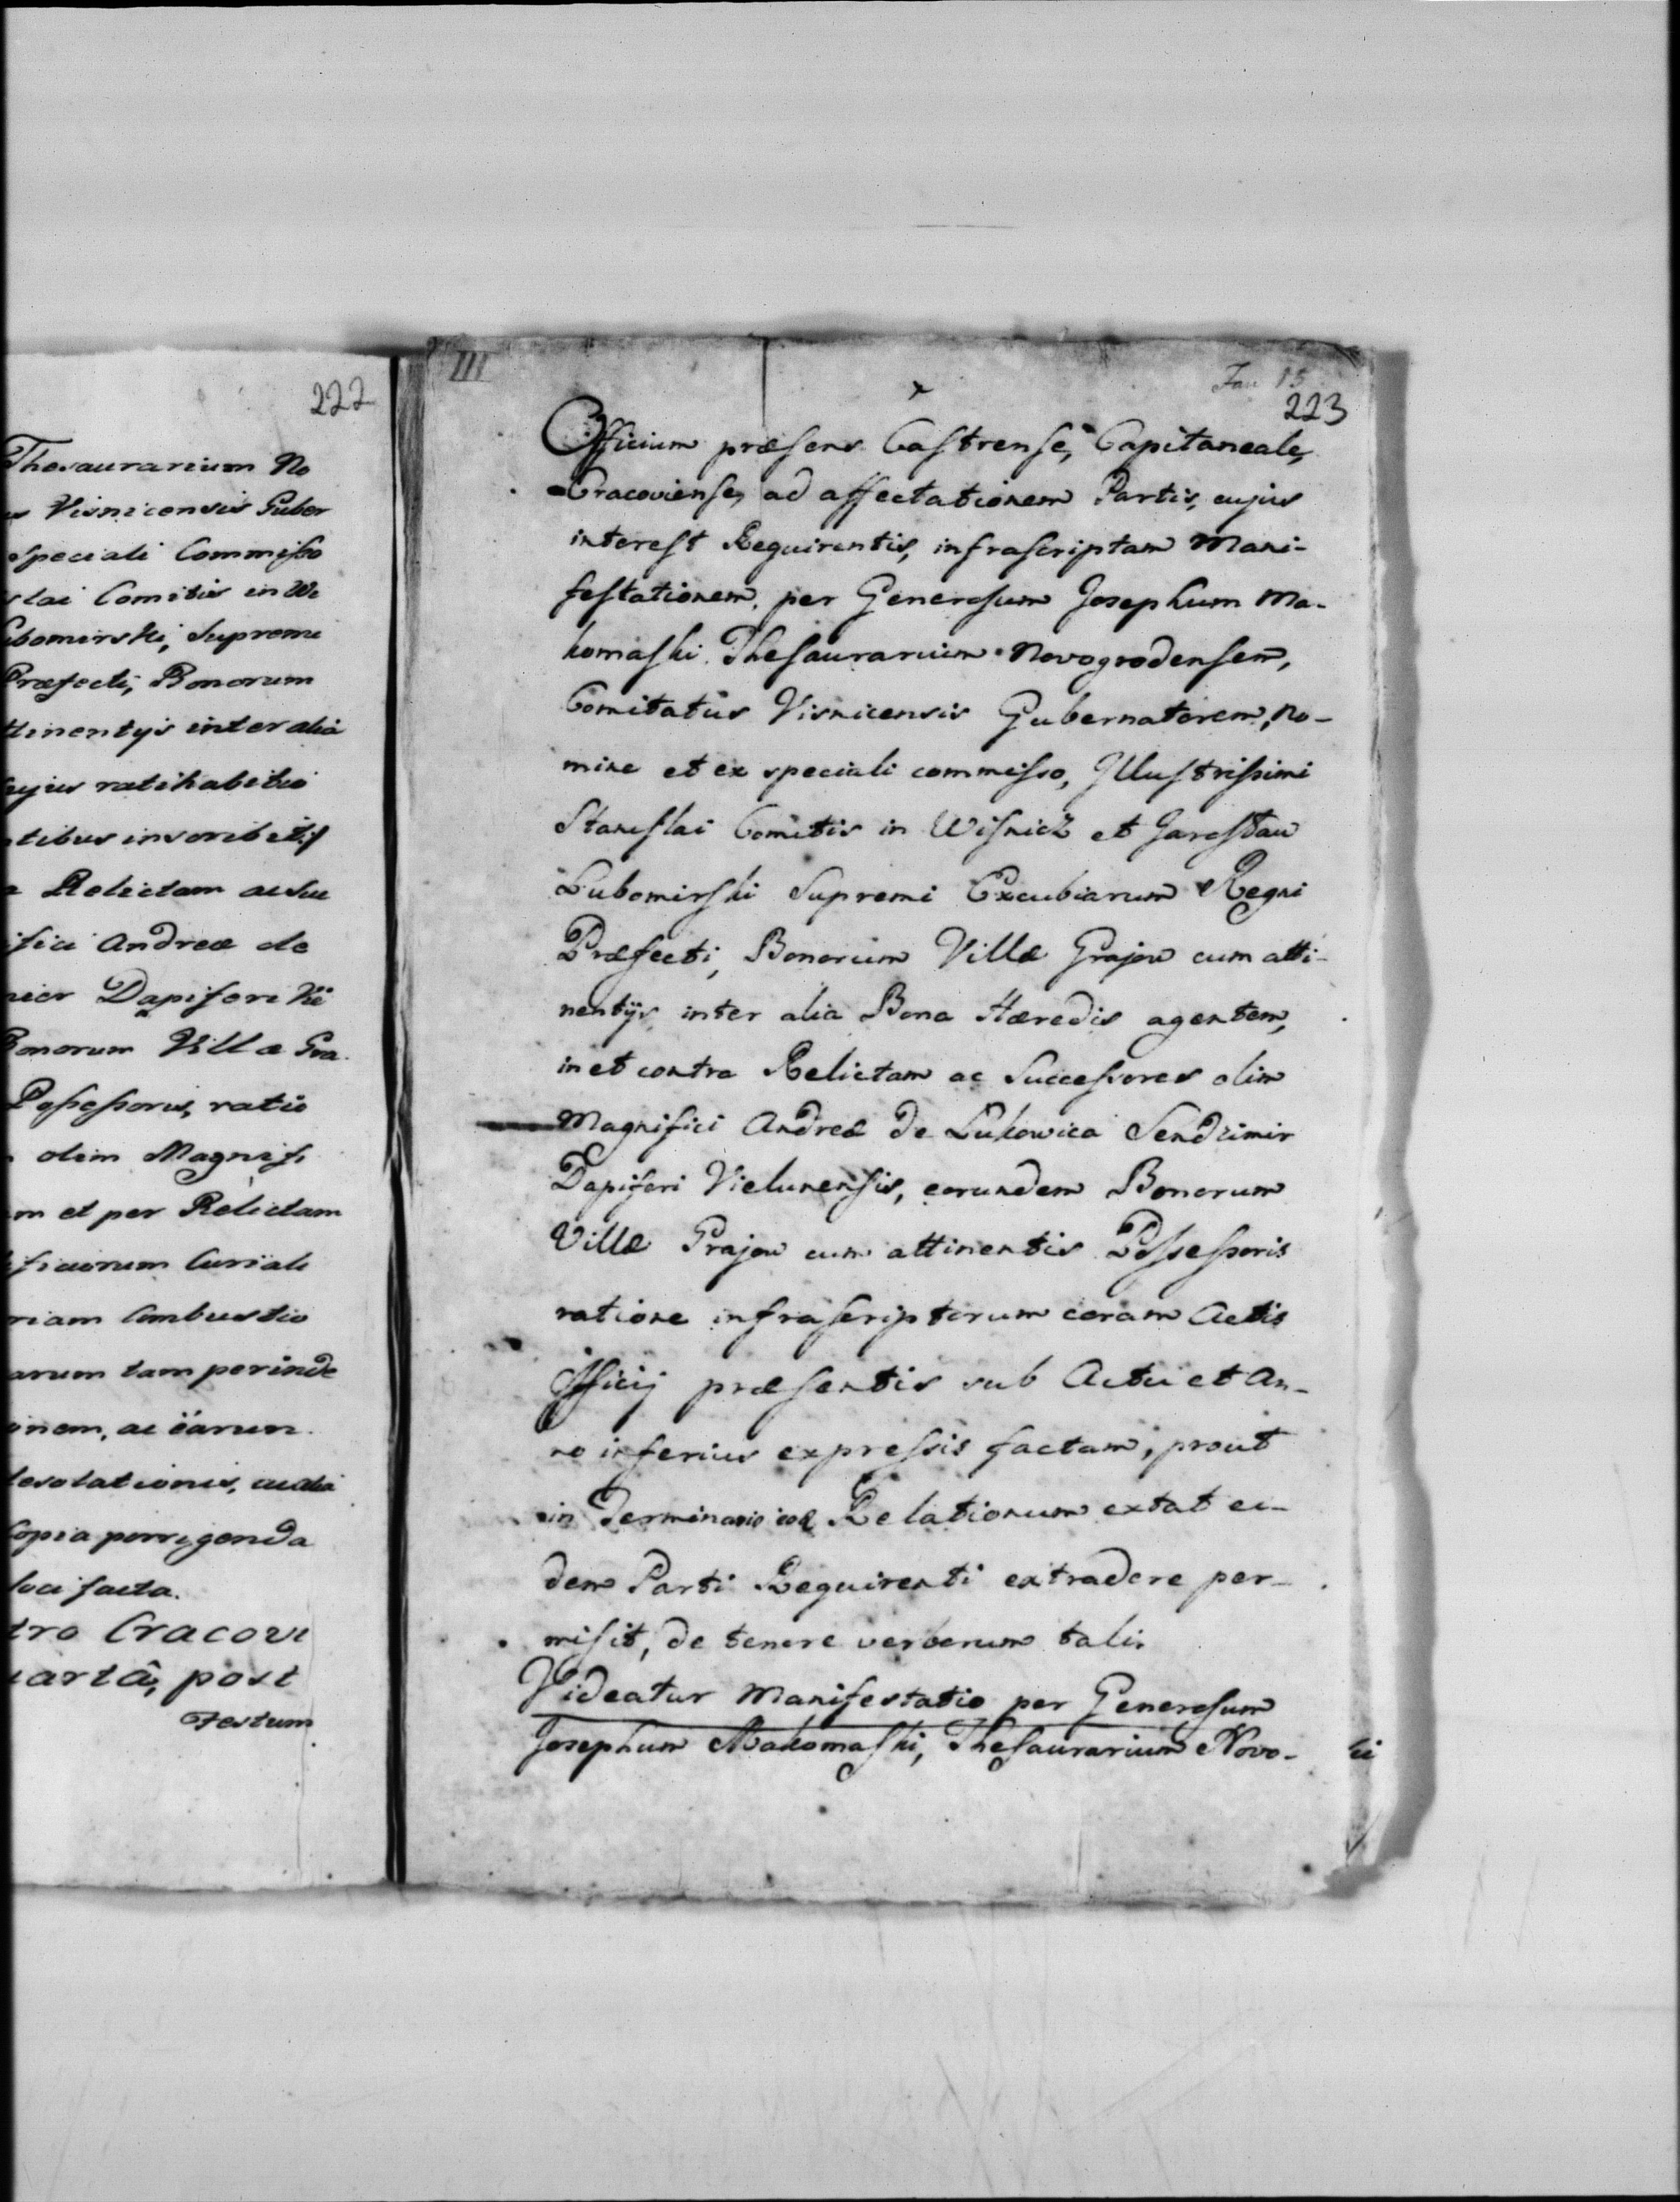 222
Thesaurarium No
Visnicensis Guber
speciali Commisso
slai Comitis in Wi
ubomirski, Supremi
Præfecti, Bonorum
ttinentijs inter alia
cujus ratihabitio
ntibus inscribit,
Relictam ac Suc
ifici Andreæ de
mir Dapiferi Vie
Bonorum Villæ Gra
Possessoris, ratio
olim Magnifi
m et per Relictam
ificiorum Curiali
riam Combustio
arum tam perinde
onem, ac earum
desolationis, audia
Copia porrigenda
loci facta.
tro Cracovi
uartâ, post
Festum
III
Jan 15
223
Officium præsens Castrense, Capitaneale,
Cracoviense, ad affectationem Partis, cujus
interest Requirentis, infrascriptam Mani-
festationem, per Generosum Josephum Ma-
komaski Thesaurarium Novogrodensem,
Comitatus Visnicensis Gubernatorem, no-
mine et ex speciali commisso, Illustrissimi
Stanislai Comitis in Wisnicz et Jarosław
Lubomirski Supremi Excubiarum Regni
Præfecti, Bonorum Villæ Grajow cum atti-
nentijs inter alia Bona Hæredis agentem,
in et contra Relictam ac Successores olim
Magnifici Andreæ de Lukowica Sendzimir
Dapiferi Vielunensis, eorundem Bonorum
Villæ Grajow cum attinentis Possessoris
ratione infrascriptorum coram Actis
Officij præsentis sub Actu et An-
no inferius expressis factam, prout
in Terminario Relationum extat ei-
dem Parti Requirenti extradere per-
misit, de tenore verborum tali.
Videatur Manifestatio per Generosum
Josephum Makomaski, Thesaurarium Novo-